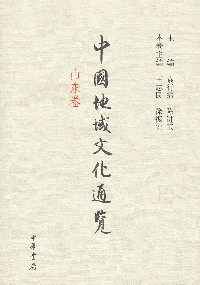 中國地域文化通覽
山東卷
主編 袁行霈 陳進玉
本卷主編 王志民 徐振宏
中華書局